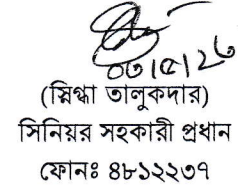 ০৩।৫।২৬
(স্নিগ্ধা তালুকদার)
সিনিয়র সহকারী প্রধান
ফোনঃ ৪৮১২২৩৭